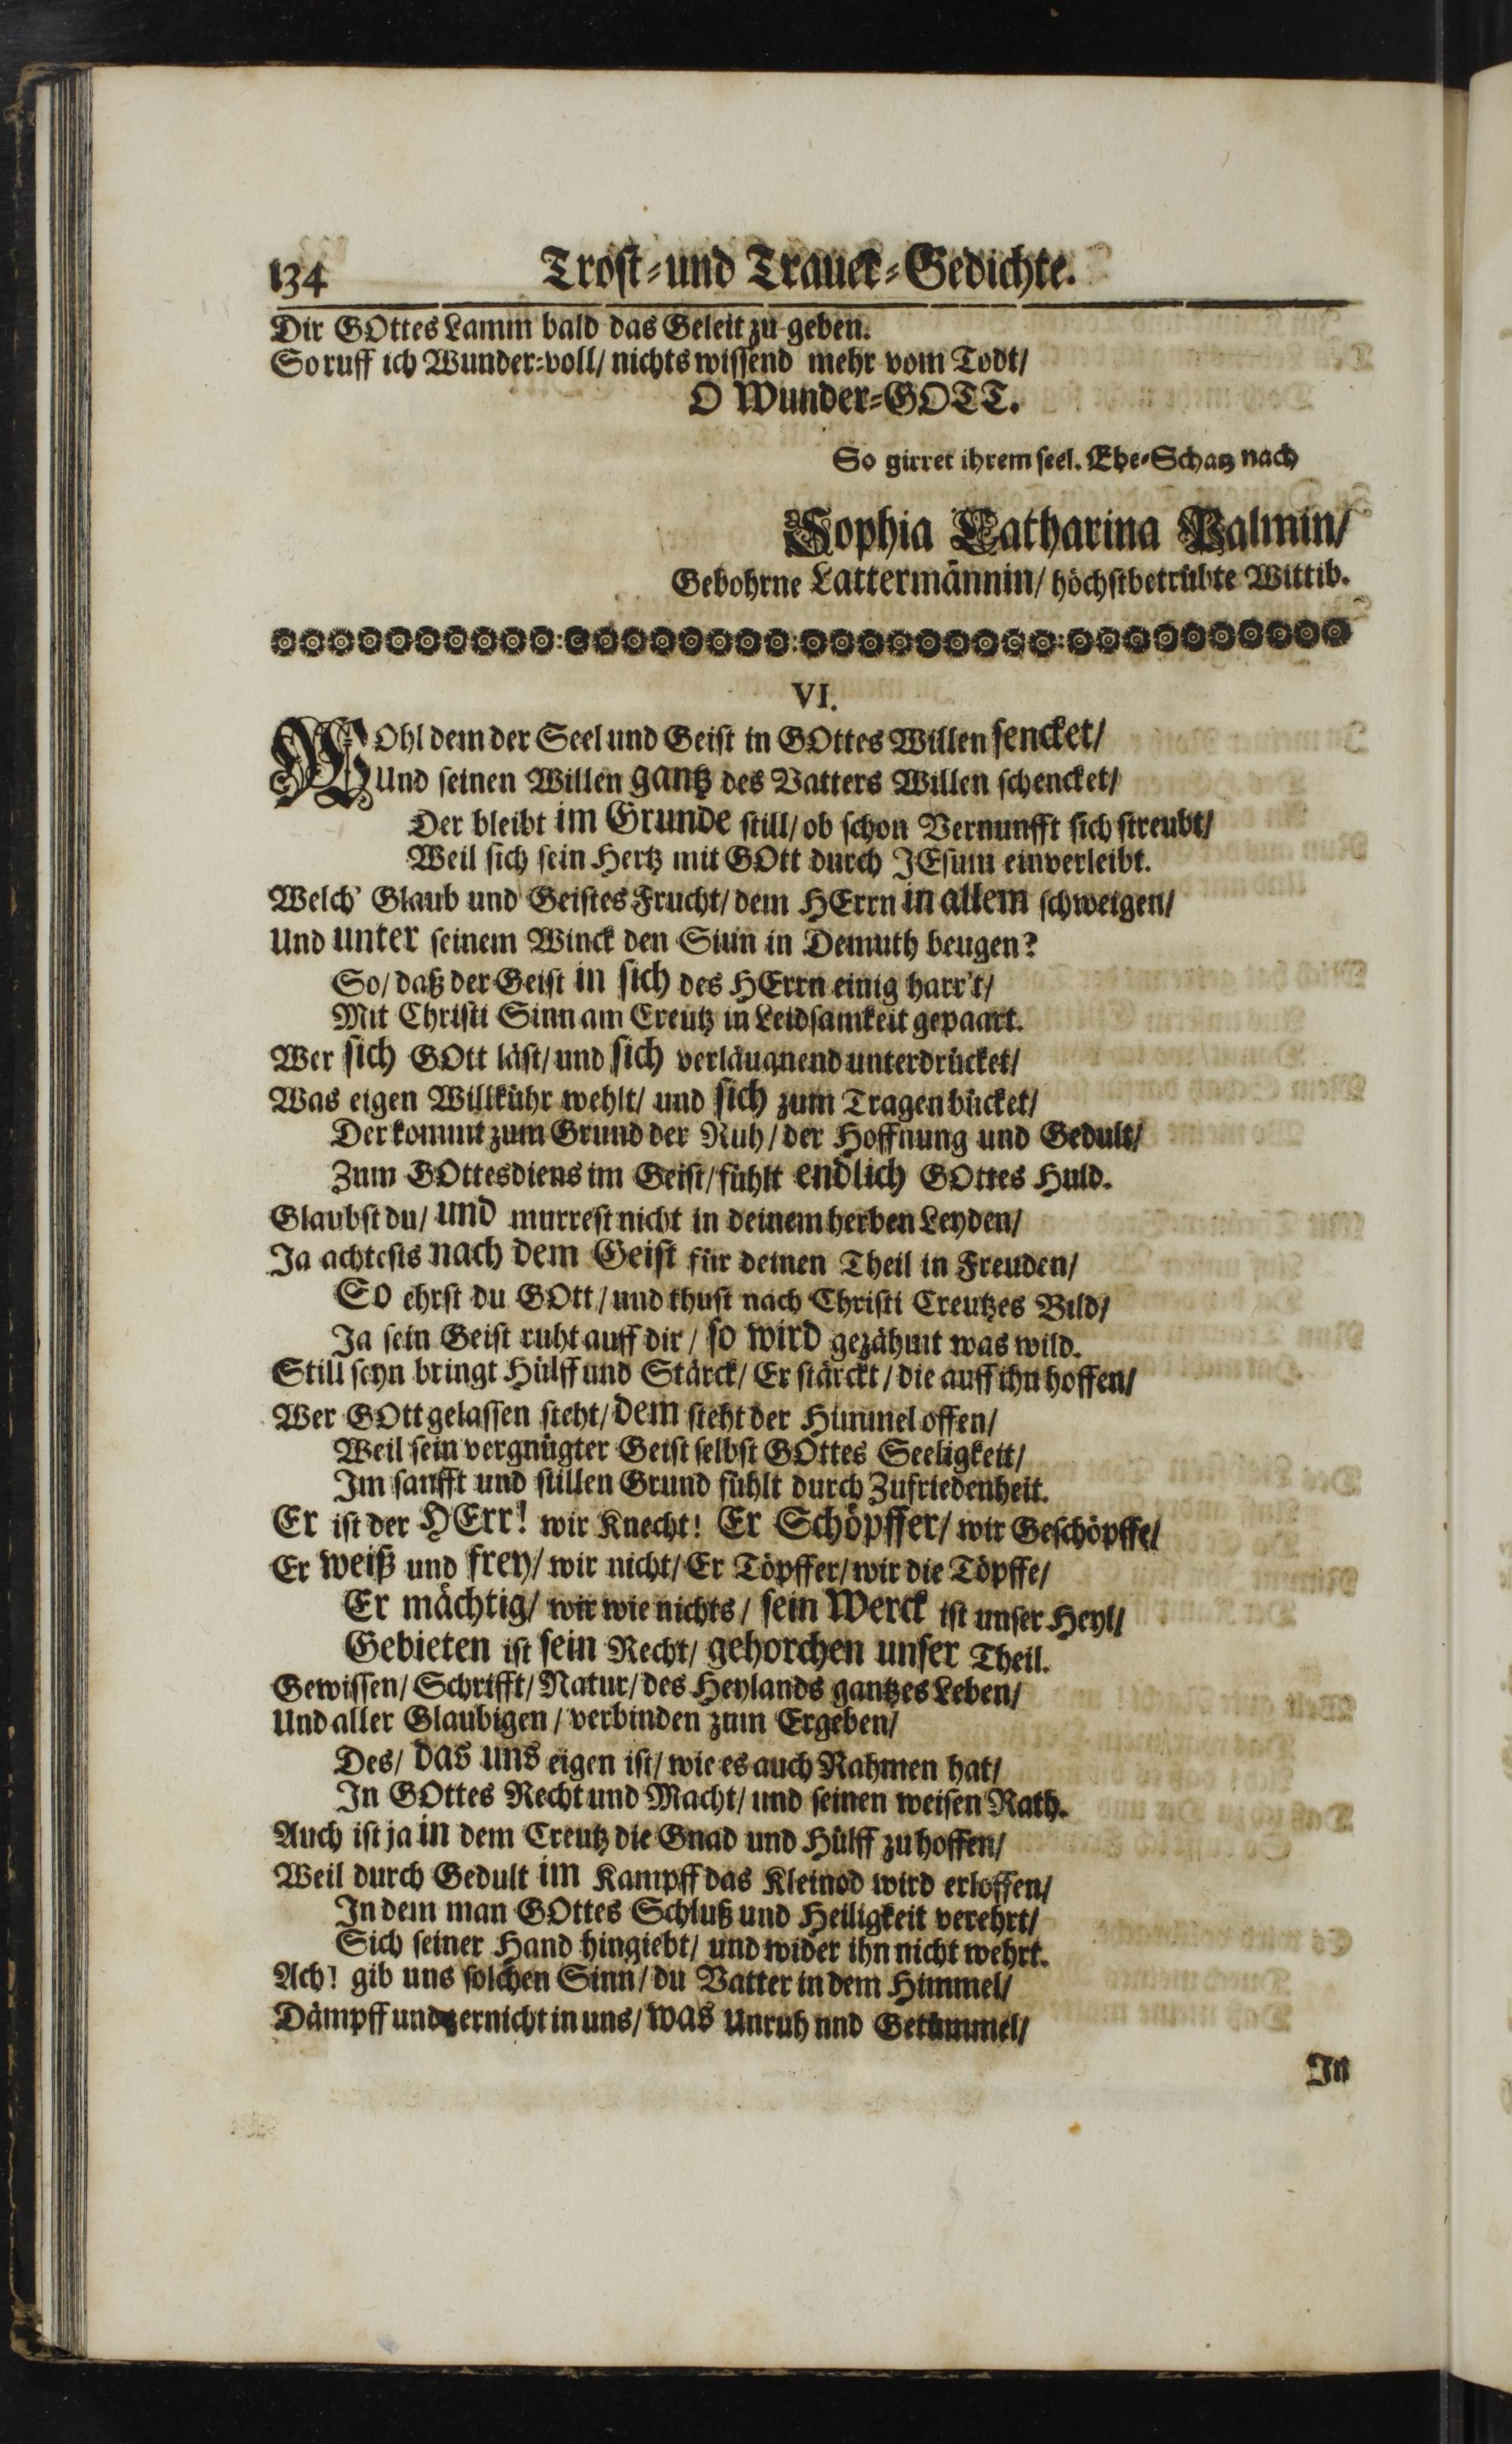 134 Trost-und Trauer-Gedichte.
Dir GOttes Lamm bald das Geleit zu geben.
So ruff ich Wunder-voll/ nichts wissend mehr vom Todt/
O Wunder-GOTT.
So girret ihrem seel. Ehe-Schatz nach
Sophia Catharina Palmin/
Gebohrne Lattermännin/ höchstbetrübte Wittib.
VI.
WOhl dem der Seel und Geist in GOttes Willen sencket/
Und seinen Willen gantz des Vatters Willen schencket/
Der bleibt im Grunde still/ ob schon Vernunfft sich streubt/
Weil sich sein Hertz mit GOtt durch JEsum einverleibt.
Welch' Glaub und Geistes Frucht/ dem HErrn in allem schweigen/
Und unter seinem Winck den Sinn in Demuth beugen?
So/ daß der Geist in sich des HErrn einig harr't/
Mit Christi Sinn am Creutz in Leidsamkeit gepaart.
Wer sich GOtt läst/ und sich verläugnend unterdrücket/
Was eigen Willkühr wehlt/ und sich zum Tragen bücket/
Der kommt zum Grund der Ruh/ der Hoffnung und Gedult/
Zum GOttesdiens im Geist/ fühlt endlich GOttes Huld.
Glaubst du/ und murrest nicht in deinem herben Leyden/
Ja achtests nach dem Geist für deinen Theil in Freuden/
So ehrst du GOtt/ und thust nach Christi Creutzes Bild/
Ja sein Geist ruht auff dir/ so wird gezähmt was wild.
Still seyn bringt Hülff und Stärck/ Er stärckt/ die auff ihn hoffen/
Wer GOtt gelassen steht/ dem steht der Himmel offen/
Weil sein vergnügter Geist selbst GOttes Seeligkeit/
Im sanfft und stillen Grund fühlt durch Zufriedenheit.
Er ist der HErr! wir Knecht! Er Schöpffer/ wir Geschöpffe/
Er weiß und frey/ wir nicht/ Er Töpffer/ wir die Töpffe/
Er mächtig/ wir wie nichts/ sein Werck ist unser Heyl/
Gebieten ist sein Recht/ gehorchen unser Theil.
Gewissen/ Schrifft/ Natur/ des Heylands gantzes Leben/
Und aller Glaubigen/ verbinden zum Ergeben/
Des/ das uns eigen ist/ wie es auch Nahmen hat/
In GOttes Recht und Macht/ und seinen weisen Rath.
Auch ist ja in dem Creutz die Gnad und Hülff zu hoffen/
Weil durch Gedult im Kampff das Kleinod wird erloffen/
In dem man GOttes Schluß und Heiligkeit verehrt/
Sich seiner Hand hingiebt/ und wider ihn nicht wehrt.
Ach! gib uns solchen Sinn/ du Vatter in dem Himmel/
Dämpff und zernicht in uns/ was Unruh nnd Getümmel/
In